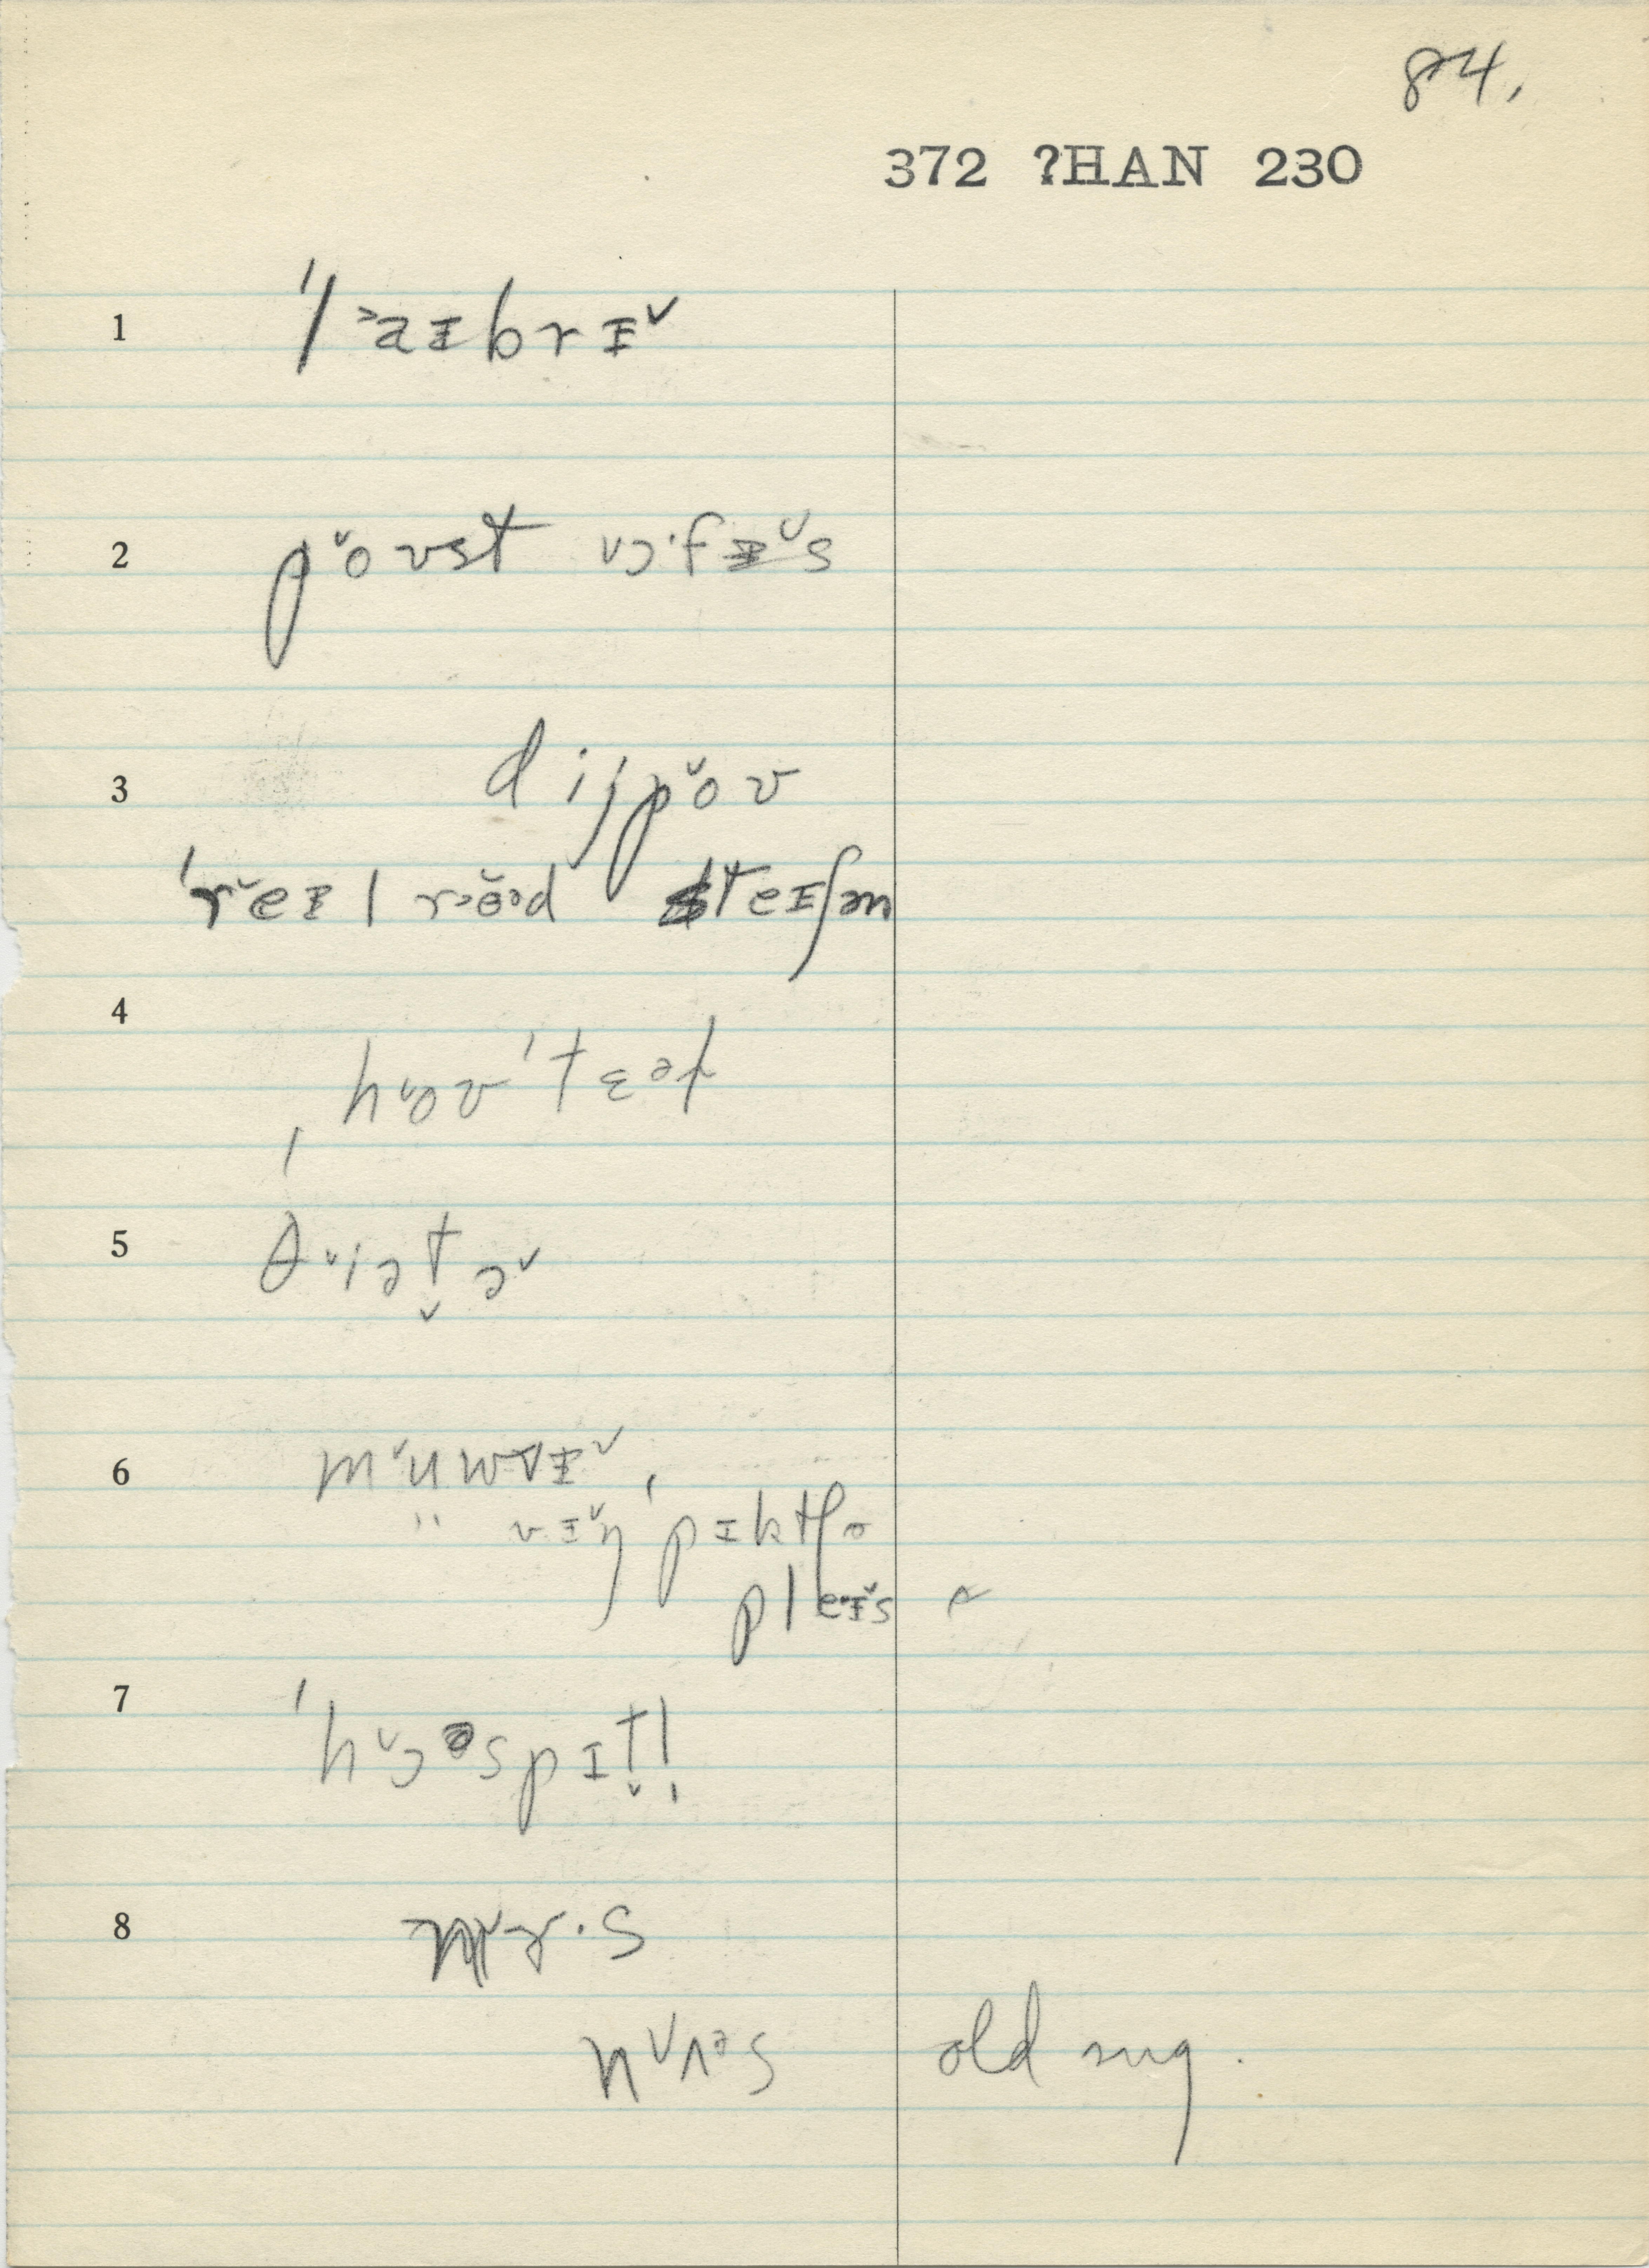 84,
372 ?HAN 230
1 ˈl˃aɪbrɪ˅
2 p˅oʊst ˅ɔ·fɪ˅s
3 dijp˅oʊ
ˈr˅eɪlroəd steɪʃən
4 ˌh˅oʊˈtɛəl
5 θ˅iət̬ə˅
6 m˅uwvɪ˅,
" vɪ˅ŋ ˈpɪktʃə
pleɪ˅s
7 ˈh˅ɔspɪt̬l̩
8 n˅ɜ·s
n˅ʌəs old sug.